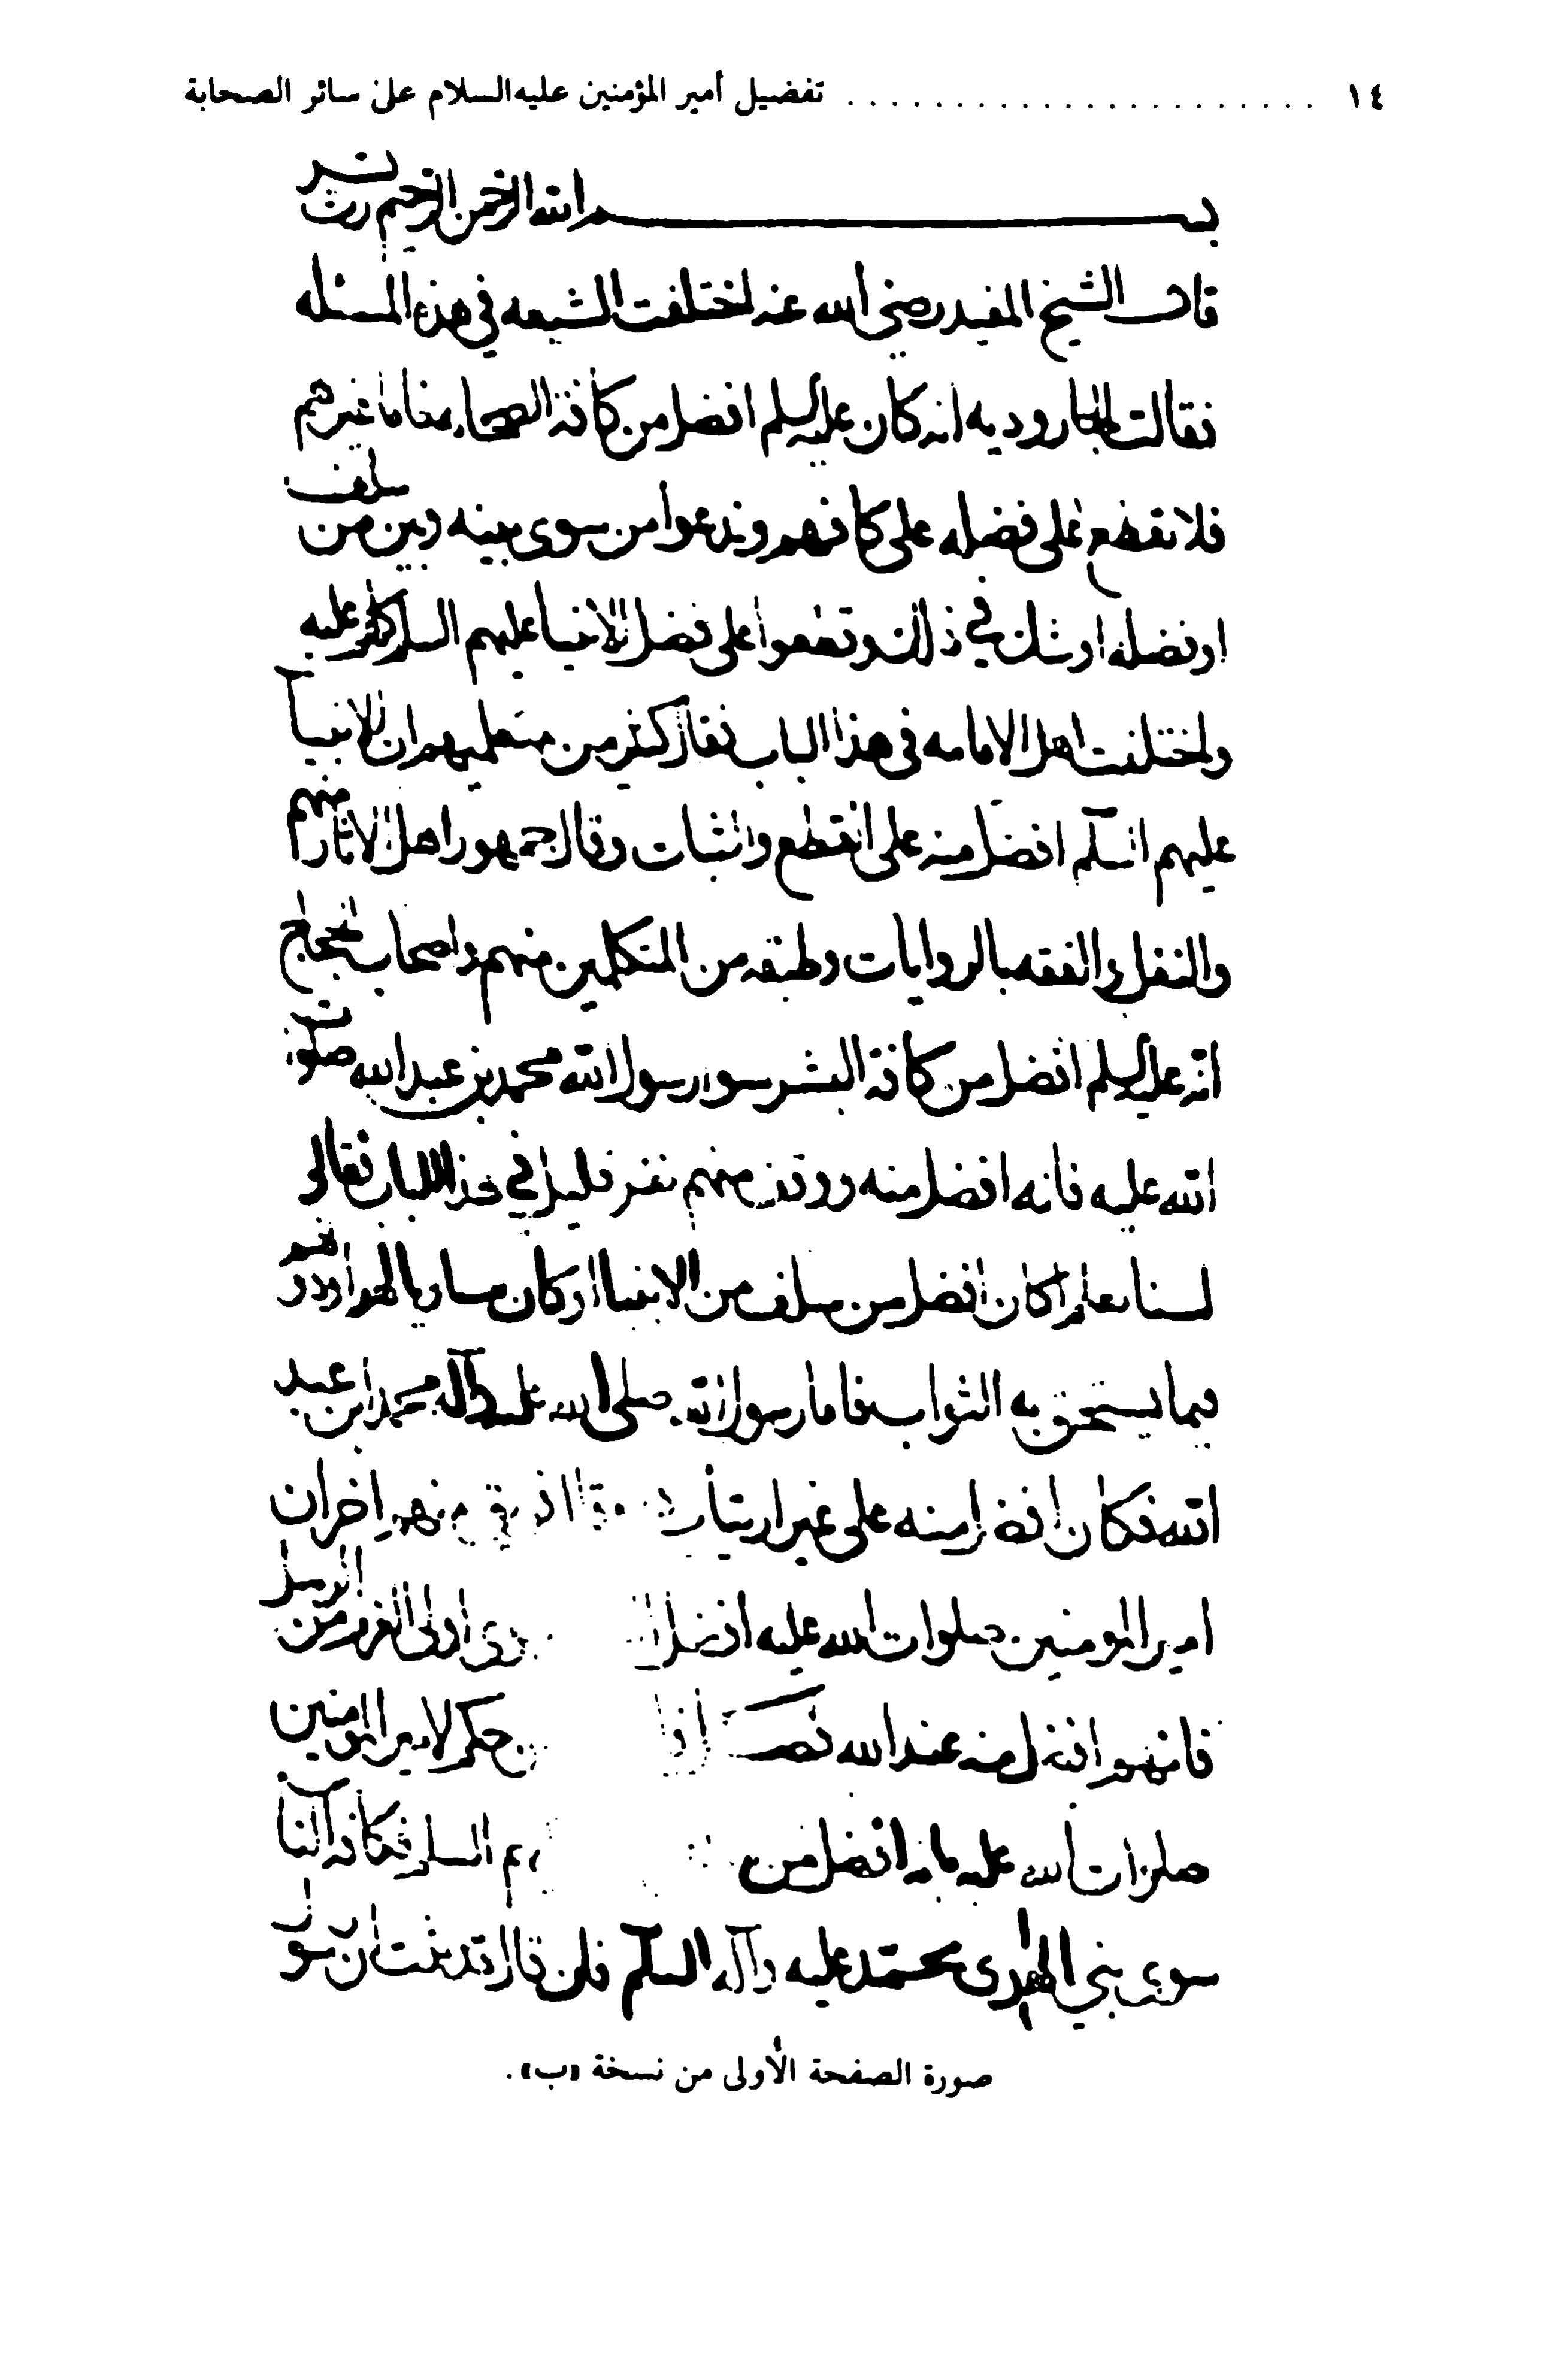 ١٤ ........................ تفضيل أمير المؤمنين عليه السلام على سائر الصحابة
بسم الله الرحمن الرحيم رب يسر
قال الشيخ المفيد رضي الله عنه اختلفت الشيعه في هذه المسئله
فقالت الجاروديه انه كان عليه السلم افضل من كافة الصحابه فاما غيرهم
فلا نقطع على فضله على كافتهم وبدعوا من سوى بينه وبين من سلف
او فضله او شك في ذلك وقطعوا على فضل الانبيا عليهم السلم كلهم عليه
واختلفت اهل الامامه في هذا الباب فقال كثير من متكلميهم ان الانبيا
عليهم السلم افضل منه على القطع والثبات وقال جمهور اهل الاثار منهم
والنقل والفقه بالروايات وطبقه من المتكلمين منهم واصحاب الحجاج
انه عليه السلم افضل من كافة البشر سوى رسول الله محمد بن عبد الله صلوات
الله عليه فانه افضل منه ووقف منهم نفر قليل في هذا الباب فقالوا
لسنا نعلم اكان افضل من سلف من الانبيا او كان مساويا لهم او دونهم
فيما يستحق به الثواب فاما رسول الله صلى الله عليه وآله محمد ابن عبد
الله فكان افضل منه على غير ارتياب وقال فريق منهم اخر ان
امير المومنين صلوات الله عليه افضل سوى اولى العزم من الرسل
فانهم افضل منه عند الله حكم لامير المومنين
صلوات الله عليه بانه افضل من السلم كافة الناس
سوى نبي الهدى محمد عليه وآله السلم فان قال قد ثبت ان رسول
صورة الصفحة الأولى من نسخة «ب».